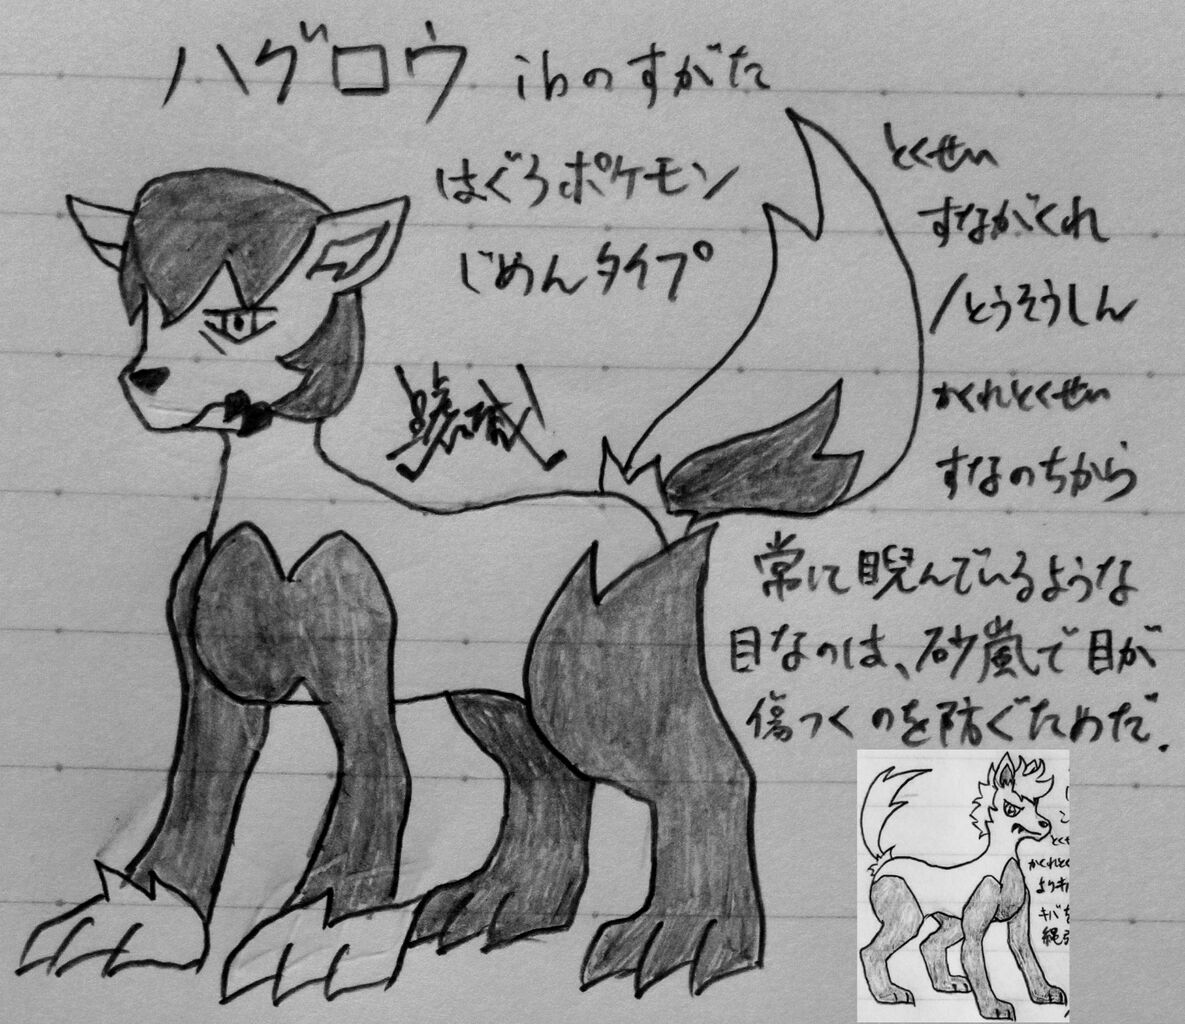 ハグロウ ibのすがた
はぐろポケモン
じめんタイプ
とくせい
すながくれ
/とうそうしん
かくれとくせい
すなのちから
常に睨んでいるような
目なのは、砂嵐で目が
傷つくのを防ぐためだ.
かくれとく
キバを